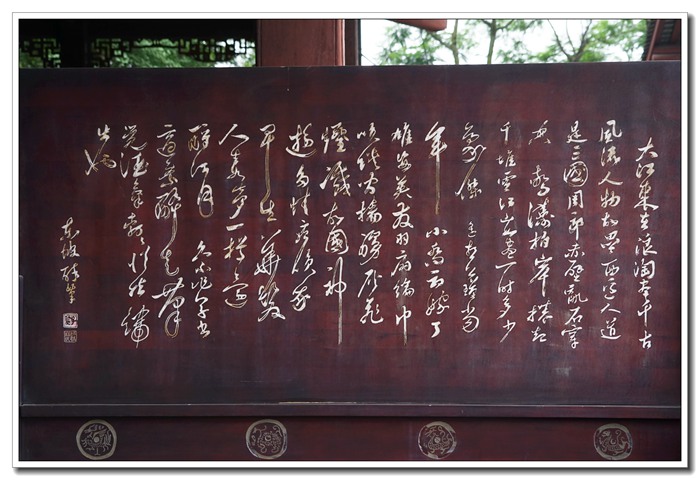 大江東去浪淘盡千古
風流人物故壘西邊人道
是三國周郎赤壁亂石穿
空驚濤拍岸捲起
千堆雪江山如畫一時多少
豪傑 遙想公瑾當
年 小喬初嫁了
雄姿英發羽扇綸巾
笑談間檣艣灰飛
煙滅故國神
遊多情應笑我
早生華髮
人生如夢一樽還
酹江月 久不作草書
適乘醉走筆
覺酒氣勃勃從指端
出也
東坡醉筆